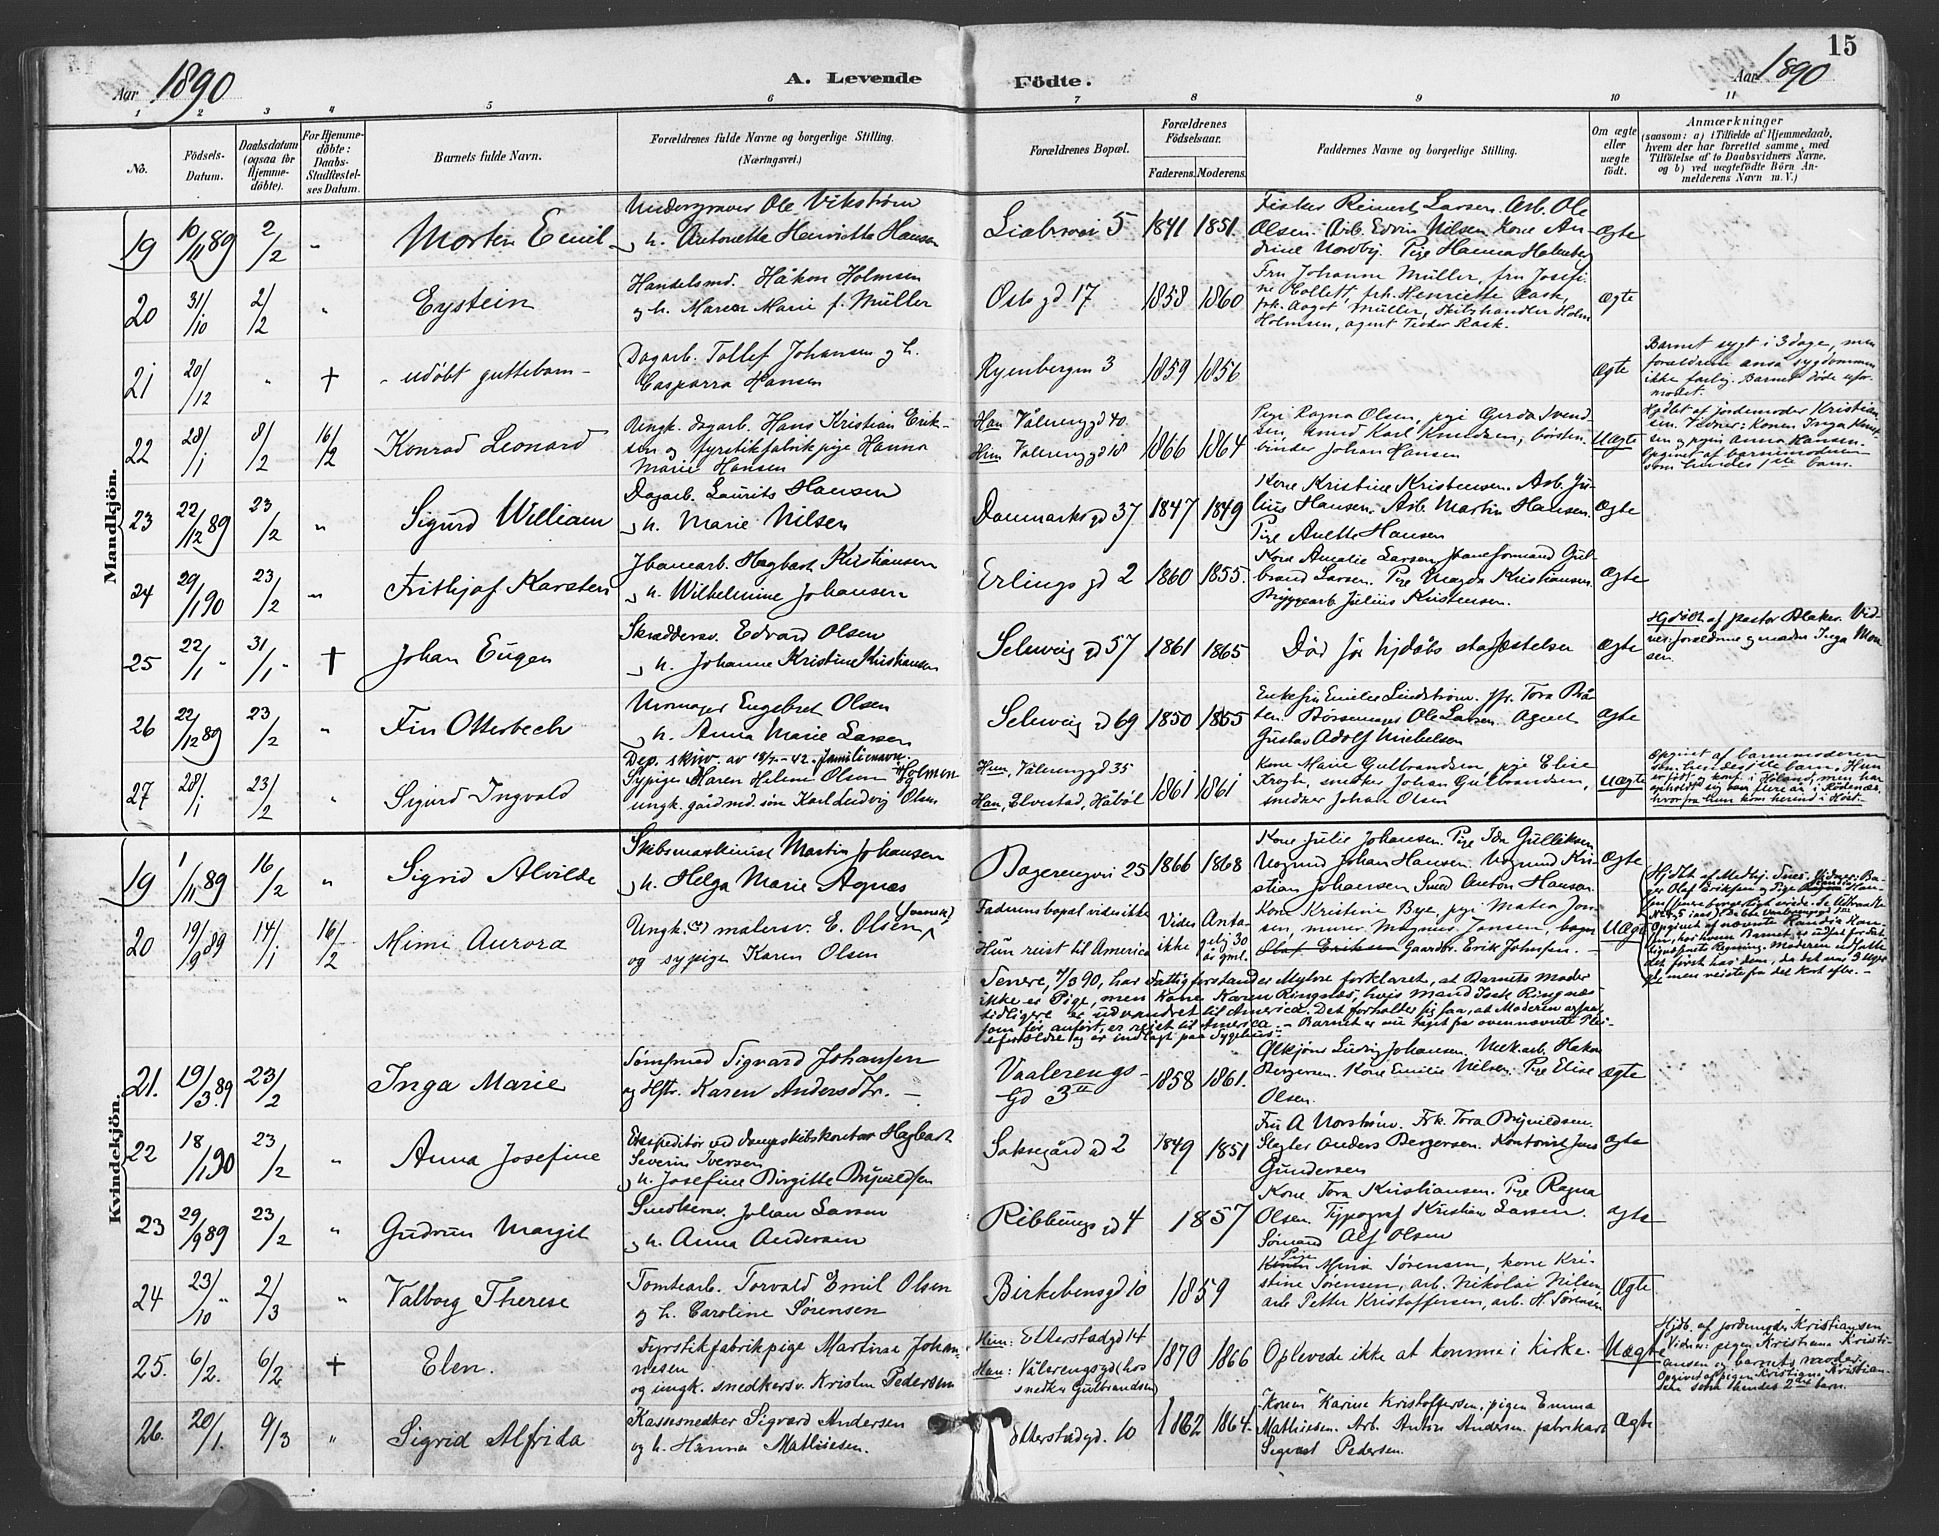 15
Aar 1890
A. Levende
Födte.
Aar 1890
1 2 3 4 5 6 7 8 9 10 11
No.
Födsels-Datum.
Daabsdatum (ogsaa for Hjemmedöbte).
For Hjemmedöbte: Daabs-Stadfæstelses Datum.
Barnets fulde Navn.
Forældrenes fulde Navne og borgerlige Stilling.
(Næringsvei.)
Forældrenes Bopæl.
Forældrenes Födselsaar.
Faderens. Moderens.
Faddernes Navne og borgerlige Stilling.
Om ægte eller uægte födt.
Anmærkninger
(saasom: a) i Tilfælde af Hjemmedaab, hvem der har forrettet samme, med Tilföielse af to Daabsvidners Navne, og b) ved uægtefödte Börn Anmelderens Navn m. V.)
Mandkjön.
19 10/11 89 2/2 " Morten Emil
Undergraver Ole Vikström
h. Antonette Henriette Hansen
5 1841 1851.
Fisker Reinert Larsen. Arb. Ole
Olsen. Arb. Edvin Nilsen. Kone An-
drine Nordby. Pige Hanna Holmberg
Ægte
20 31/10 2/2 " Eystein
Handelsmd. Håkon Holmsen
og h. Maren Marie f. Müller
Oslo gd 17 1858 1860
Fru Johanne Müller, fru Josefi-
ne Collett, frk. Henriette Rask,
frk. Aagot Müller, Holm
Holmsen, agent Rask.
Ægte
21 20/12 " † - udöbt guttebarn -
Dagarb. Tollef Johansen og h.
Casparra Hansen
Ryenbergen 3 1859 1856
Ægte
Barnet sygt i 3 dage, men
forældrene ansa sygdommen
ikke farlig. Barnet döde ufor-
modet.
22 28/1 8/2 16/2 Konrad Leonard
Ungk. dagarb. Hans Kristian Erik-
sen og fyrstikfabrikpige Hanna
Marie Hansen
Han Vålereng gd 40
Hun Vålereng gd 18
1866 1864
Pige Ragna Olsen, pige Gerda Svend-
sen, smed Karl Knudsen, börsten-
binder Johan Hansen
Uægte
Hjdbt af jordemoder Kristian-
sen. Vidner: konen Inga Knut-
sen og pigen Anna Hansen.
Opgivet af barnemoderen
som hendes 1ste barn.
23 22/12 89 23/2 " Sigurd William
Dagarb. Laurits Hansen
h. Marie Nilsen
Danmarks gd 37 1847 1849
Kone Kristine Kristensen. Arb. Ju-
lius Hansen. Arb. Martin Hansen.
Pige Anette Hansen
Ægte
24 29/1 90 23/2 " Frithjof Karsten
Jbanearb. Hagbart Kristiansen
h. Wilhelmine Johansen
Erlings gd 2 1860 1855.
Kone Amalie Larsen. Jbaneformand Gul-
brand Larsen. Pige Magda Kristiansen.
Bryggearb. Julius Kristensen.
Ægte
25 22/1 - 31/1 - † Johan Eugen
Skræddersv. Edvard Olsen
h. Johanne Kristine Kristiansen
Schweig gd 57 1861 1865
Död för hjdåbs stadfæstelse
Ægte
Hjdöbt af pastor Blaker. Vid-
ner: forældrene og madm Inga Mon-
sen.
26 22/12 89 23/2 " Fin Otterbech
Urmager Engebret Olsen
h. Anna Marie Larsen
Schweig gd 69 1850 1855
Enkefru Emilie Lindström. Jfr. Tora Brå-
ten. Börsemager Ole Larsen. Agent
Gustav Adolf Mikkelsen
Ægte
27 28/1 23/2 " Sigurd Ingvald
Dep. skriv. av 18/7 - 42. familienavn: Holmen
Sypige Maren Helene Olsen og
ungk. gardmd. sön Karl Ludvig Olsen
Hun, Vålereng gd 35
Han, Elvestad, Håböl
1861 1861
Kone Marie Gulbrandsen, pige Elise
Krogh, snedker Johan Gulbrandsen,
snedker Johan Olsen
Uægte
Opgivet af barnemoderen
som hendes 1ste barn. Hun
er föd og konf. i Höland, men har
opholdt sig flere år i Rödenæs,
hvorfra hun kom herind i Höst.
Kvindekjön.
19 1/11 89 16/2 " Sigrid Alvilde
Skibsmaskinist Martin Johansen
h. Helga Marie Agnæs
Dagerengvei 25 1866 1868
Kone Julie Johansen. Pige Ida Gulliksen
Vognmd Johan Hansen. Vognmd Kri-
stian Johansen. Smed Anton Hansen
Ægte
20 19/9 89 14/1 16/2 Mimi Aurora
Ungk. (?) malersv. E. Olsen (svensk)
og sypige Karen Olsen
Faderens bopæl vides ikke
Hun reist til America
Vides ikke
Antagelig 30 år gml.
Kone Kristine Bye, pige Matea Jon-
sen, murer Magnus Jensen, bager
Olaf Eriksen Gaardbr. Erik Johnsen. -
Uægte
Senere, 7/3 90, har Fattigforstander Myhre forklaret, at Barnets Moder
ikke er Pige, men Kone Karen Ringnæs, hvis Mand Isak Ringnæs
tidligere er udvandret til America. Det forholder sig saa, at Moderen ogsaa,
som för anfört, er reist til America. - Barnet er nu taget fra ovennævnte Plei-
eforældre og er indlagt paa Sygehus.
21. 19/3 89 23/2 Inga Marie
Tömmermd Sigvard Johansen
og Hstr. Karen Andersdtr. -
Vaalerengs-
Gd 3 II
1858 1861.
Ölkjörer Ludvig Johansen. Mek. arb. Hakon
Bergersen. Kone Emilie Nilsen. Pige Elise
Olsen.
Ægte
22 18/1 90 23/2 " Anna Josefine
Ekspeditör ved dampskibskontor Hagbart
Severin Iversen
h. Josefine Birgitte Brynildsen
Saksegård gd 2 1849 1851
Fru A Norström. Frk. Tora Brynildsen.
Slagter Anders Bergersen. Kontorist Jens
Gundersen
Ægte
23 29/9 89 23/2 " Gudrun Margit
Snedkersv. Johan Larsen
h. Anna Andersen
Ribbungs gd 4 1857
Kone Tora Kristiansen. Pige Ragna
Olsen. Typograf Kristian Larsen.
Sömand Alf Olsen
ægte
24 23/10 " 2/3 " Valborg Therese
Tomtearb. Torvald Emil Olsen
og h. Caroline Sörensen
Birkebensgd 10 1859
Pige
Konen Mina Sörensen, kone Kri-
stine Sörensen, arb. Nikolai Nilsen,
arb Petter Kristoffersen, arb. H. Sörensen
Ægte
25. 6/2. 6/2. † Elen.
Fyrstikfabrikpige Martine Johan-
nesen
og ungk. snedkersv. Kristen Pedersen
Hun: Etterstadgd 14
Han: Vålerengsgd (hos
snedker Gulbrandsen)
1870 1866
Oplevede ikke at komme i kirke.
Uægte
Hjdb. af jordemoder Kristiansen
Vidner: pigen Kristiane Kristi-
ansen og barnets moder
Opgivet af pigen Kristiane Kristian-
sen som hendes 2det barn.
26. 20/1. 9/3 " Sigrid Alfrida
Kassesnedker Sigvard Andersen
og h. Hanna Mathisen.
Etterstadgd. 10 1862 1864.
Konen Karine Kristoffersen, pigen Emma
Mathiesen. Arb. Anton Andersen. fabrikarb
Sigvart Pedersen.
Ægte